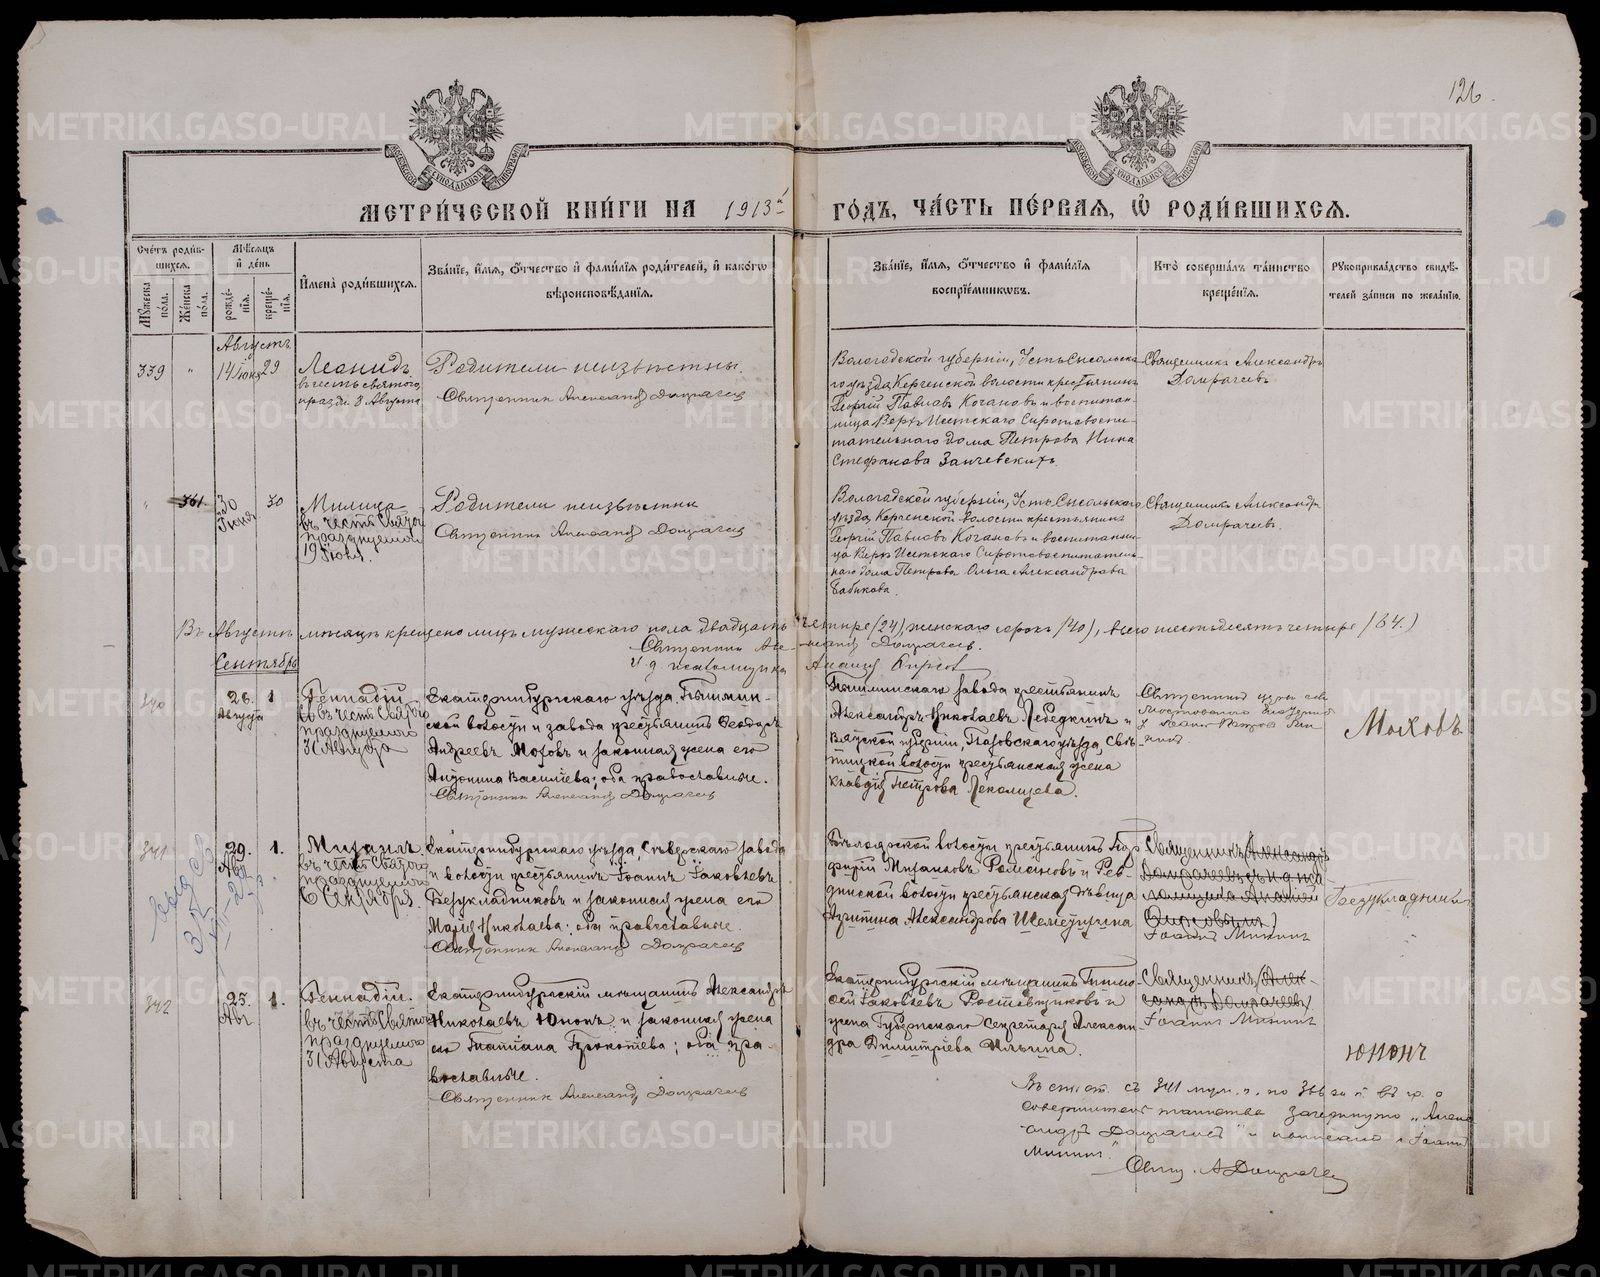 126.
МЕТРИ́ЧЕСКОЙ КНИ́ГИ НА 1913й ГО́ДЪ, ЧА́СТЬ ПЕ́РВАЯ, Ѡ҆ РОДИ́ВШИХСЯ.
Сче́тъ роди́в-
шихся.
Мѣ́сяцъ
и҆ де́нь
Мꙋ́жеска
по́ла.
Же́нска
по́ла.
рожде́-
нія.
креще́-
нія.
И҆мена̀ роди́вшихся.
Зва́ніе, и҆́мя, ѻ҆́тчество и҆ фами́лія роди́телей, и҆ како́гѡ
вѣроисповѣ́данія.
Зва́ніе, и҆́мя, ѻ҆́тчество и҆ фами́лія
воспріе́мникѡвъ.
Кто̀ соверша́лъ та́инство
креще́нія.
Рꙋкоприкла́дство свидѣ́-
телей за́писи по жела́нію.
Августъ
339 " 14 Іюня 29
Леонидъ
въ честь святого,
празд. 8 Августа
Родители неизвѣстны.
Священникъ Александръ Домрачевъ
Вологодской губерніи, Устьсысольска-
го уѣзда, Керчемской волости крестьянинъ
Георгій Павловъ Когановъ и воспитан-
ница Верхъ-Исетскаго Сиротовоспи-
тательнаго дома Петрова Нина
Стефанова Занчевскихъ.
Священникъ Александръ
Домрачевъ
" 361 30 Іюня 30
Милица
въ честь Святой
празднуемой
19 Іюля.
Родители неизвѣстны
Священникъ Александръ Домрачевъ
Вологодской губерніи, Устьсысольскаго
уѣзда, Керчемской волости крестьянинъ
Георгій Павловъ Когановъ и воспитанни-
ца Верхъ-Исетскаго Сиротовоспитатель-
наго дома Петрова Ольга Александрова
Бабикова.
Священникъ Александръ
Домрачевъ.
Въ Августѣ мѣсяцѣ крещено лицъ мужескаго пола двадцать четыре (24), женскаго сорокъ (40), всего шестьдесятъ четыре (64.)
Священникъ Александръ Домрачевъ.
И. д. псаломщика Ананій Фирсовъ
Сентябрь
340 26. Августа 1
Геннадій
въ честь Святого
празднуемого
31 Августа
Екатеринбургскаго уѣзда, Пышмин-
ской волости и завода крестьянинъ Ѳеодоръ
Андреевъ Моховъ и законная жена его
Антонина Васильева; оба православные.
Священникъ Александръ Домрачевъ
Пышминскаго завода крестьянинъ
Александръ Николаевъ Лебедкинъ и
Вятской губерніи, Глазовскаго уѣзда, Свя-
тицкой волости крестьянская жена
Клавдія Петрова Лекомцева.
Моховъ
341 29. Авг. 1.
Михаилъ.
въ честь Святого
празднуемого
6 Сентября.
Екатеринбургскаго уѣзда, Сѣверскаго завода
и волости крестьянинъ Іоаннъ Іаковлевъ
Безукладниковъ и законная жена его
Марія Николаева; оба православные.
Священникъ Александръ Домрачевъ
Бѣлоярской волости крестьянинъ Пор-
фирій Михаиловъ Романовъ и Рев-
динской волости крестьянская дѣвица
Агриппина Александрова Шелегугина
Священникъ Александръ
Домрачевъ съ и. д. пса-
ломщика Ананій
Фирсовымъ)
Іоаннъ Мининъ
Безукладниковъ
342 25. Авг. 1.
Геннадій.
въ честь Святого
празднуемого
31 Августа
Екатеринбургскій мѣщанинъ Александръ
Николаевъ Юнонъ и законная жена
его Татіана Прокопіева; оба пра-
вославные.
Священникъ Александръ Домрачевъ
Екатеринбургскій мѣщанинъ Тимо-
ѳей Іаковлевъ Ростовщиковъ и
жена Губернскаго Секретаря Алексан-
дра Димитріева Ильина.
Священникъ (Алек-
сандръ Домрачевъ)
Іоаннъ Мининъ
Юнонъ
Въ стат. съ 341 муж. п. по въ гр. о
совершителѣ таинства зачеркнуто „Алек-
сандръ Домрачевъ" и написано „Іоаннъ
Мининъ."
Свящ. А Домрачевъ